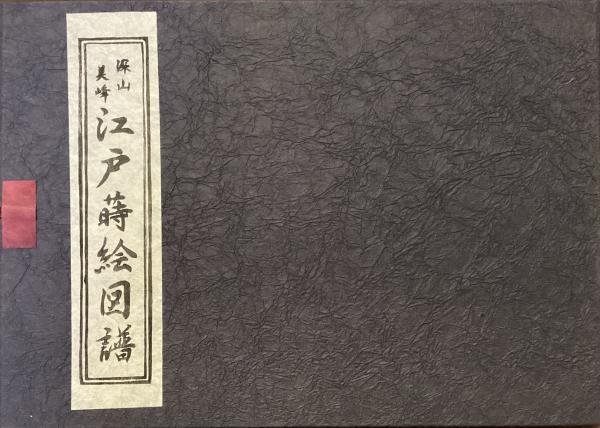 梁山
美峰
江戸蒔絵図譜